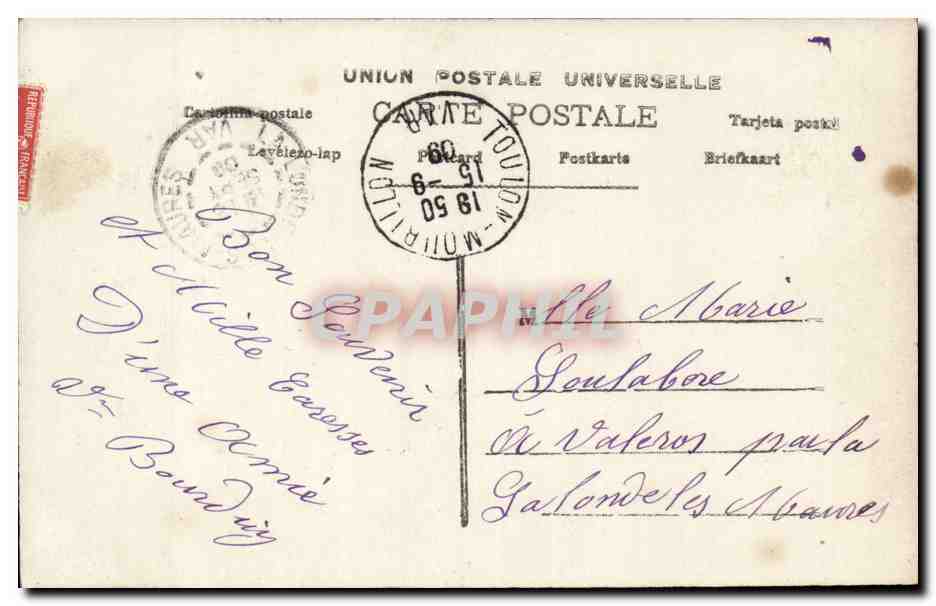 UNION POSTALE UNIVERSELLE
CARTE POSTALE
Cartolina postale
Tarjeta postal
Levelezo-lap
Postcard
Postkarte
Briefkaart
REPUBLIQUE FRANCAISE
TOULON-MOURILLON
VAR
19 50
15 -9
09
VAR
MAURES
Bon Souvenir
et Mille Caresses
D'une Amie
Bourduin
Mlle Marie
Soulabore
à Valeros par la
Lalonde les Maures
CPAPHIL